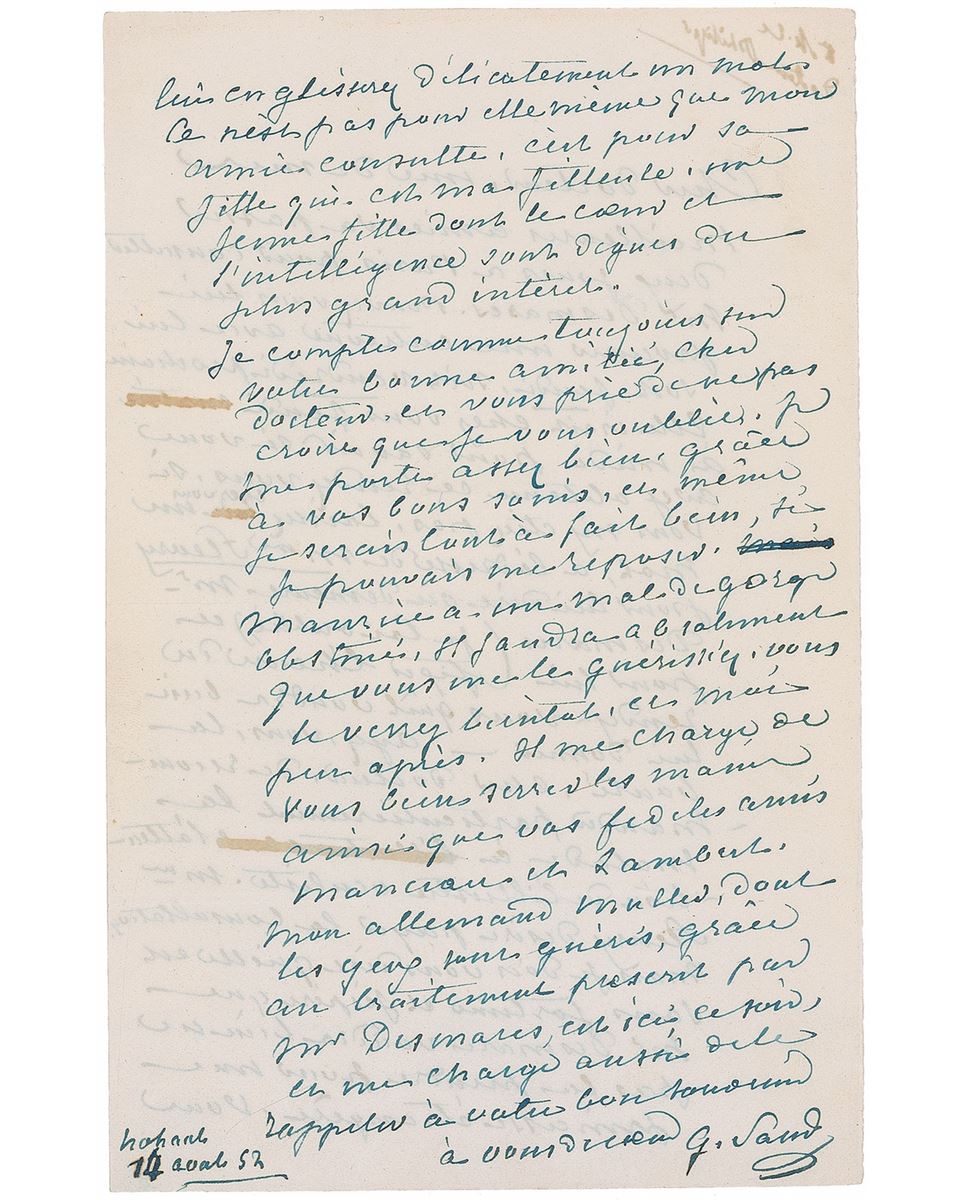 lui en glisserez délicatement un mot.
Ce n'est pas pour elle même que mon
amie consulte, c'est pour sa
fille qui est ma filleule, une
jeune fille dont le cœur et
l'intelligence sont dignes du
plus grand intérêt.
Je compte comme toujours sur
votre bonne amitié, cher
docteur, et vous prie de ne pas
croire que je vous oublie. Je
me porte assez bien, grâce
à vos bons soins, et même
je serais tout à fait bien, si
je pouvais me reposer.
Maurice a un mal de gorge
obstiné. Il faudra absolument
que vous me le guérissiez. vous
le verrez bientôt, et moi
peu après. Il me charge de
vous bien serrer les mains
ainsi que vos fidèles amis
Manceau et Lambert.
Mon allemand Muller, dont
les yeux sont guéris, grâce
au traitement prescrit par
mr Desmares, est ici ce soir,
et me charge aussi de le
rappeler à votre bon souvenir
à vous de cœur G. Sand
Nohant
14 avril 52